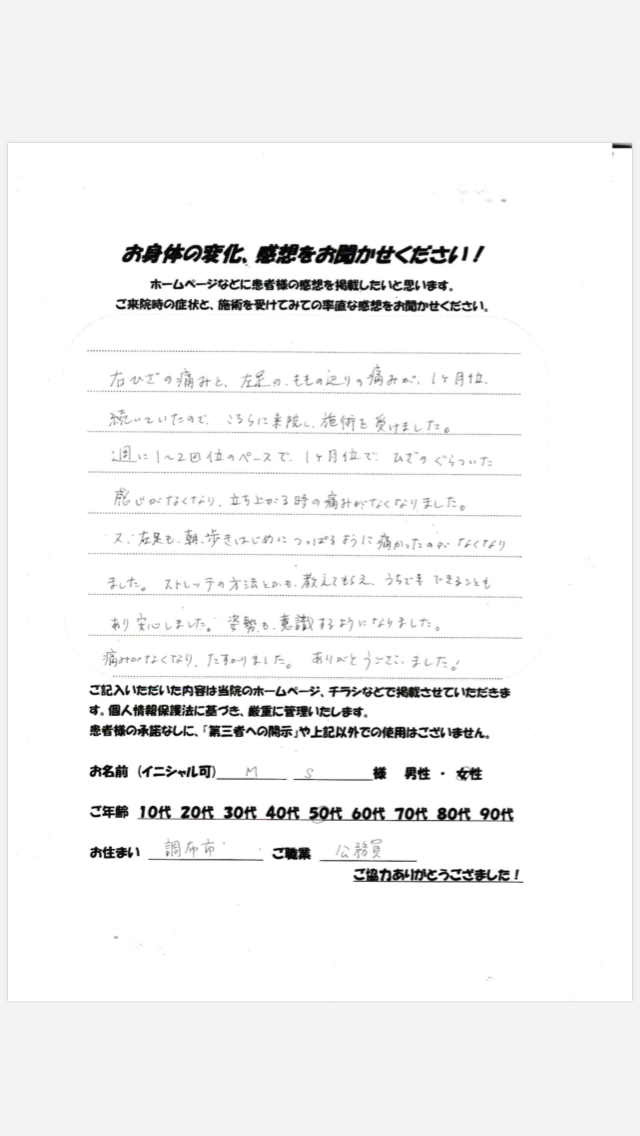 お身体の変化、感想をお聞かせください！
ホームページなどに患者様の感想を掲載したいと思います。
ご来院時の症状と、施術を受けてみての率直な感想をお聞かせください。
右ひざの痛みと、左足の、ももの辺りの痛みが、1ヶ月位、
続いていたので、こちらに来院し、施術を受けました。
週に1～2回位のペースで、1ヶ月位で、ひざのぐらついた
感じがなくなり、立ち上がる時の痛みがなくなりました。
又、左足も、朝、歩きはじめに つっぱるように痛かったのが なくなり
ました。 ストレッチの方法とかも、教えてもらえ、うちでも できることも
あり 安心しました。 姿勢も、意識するようになりました。
痛みがなくなり、たすかりました。 ありがとうございました！
ご記入いただいた内容は当院のホームページ、チラシなどで掲載させていただきま
す。個人情報保護法に基づき、厳重に管理いたします。
患者様の承諾なしに、「第三者への開示」や上記以外での使用はございません。
お名前（イニシャル可） M S 様 男性 ・ 女性
ご年齢 10代 20代 30代 40代 50代 60代 70代 80代 90代
お住まい 調布市 ご職業 公務員
ご協力ありがとうござました！